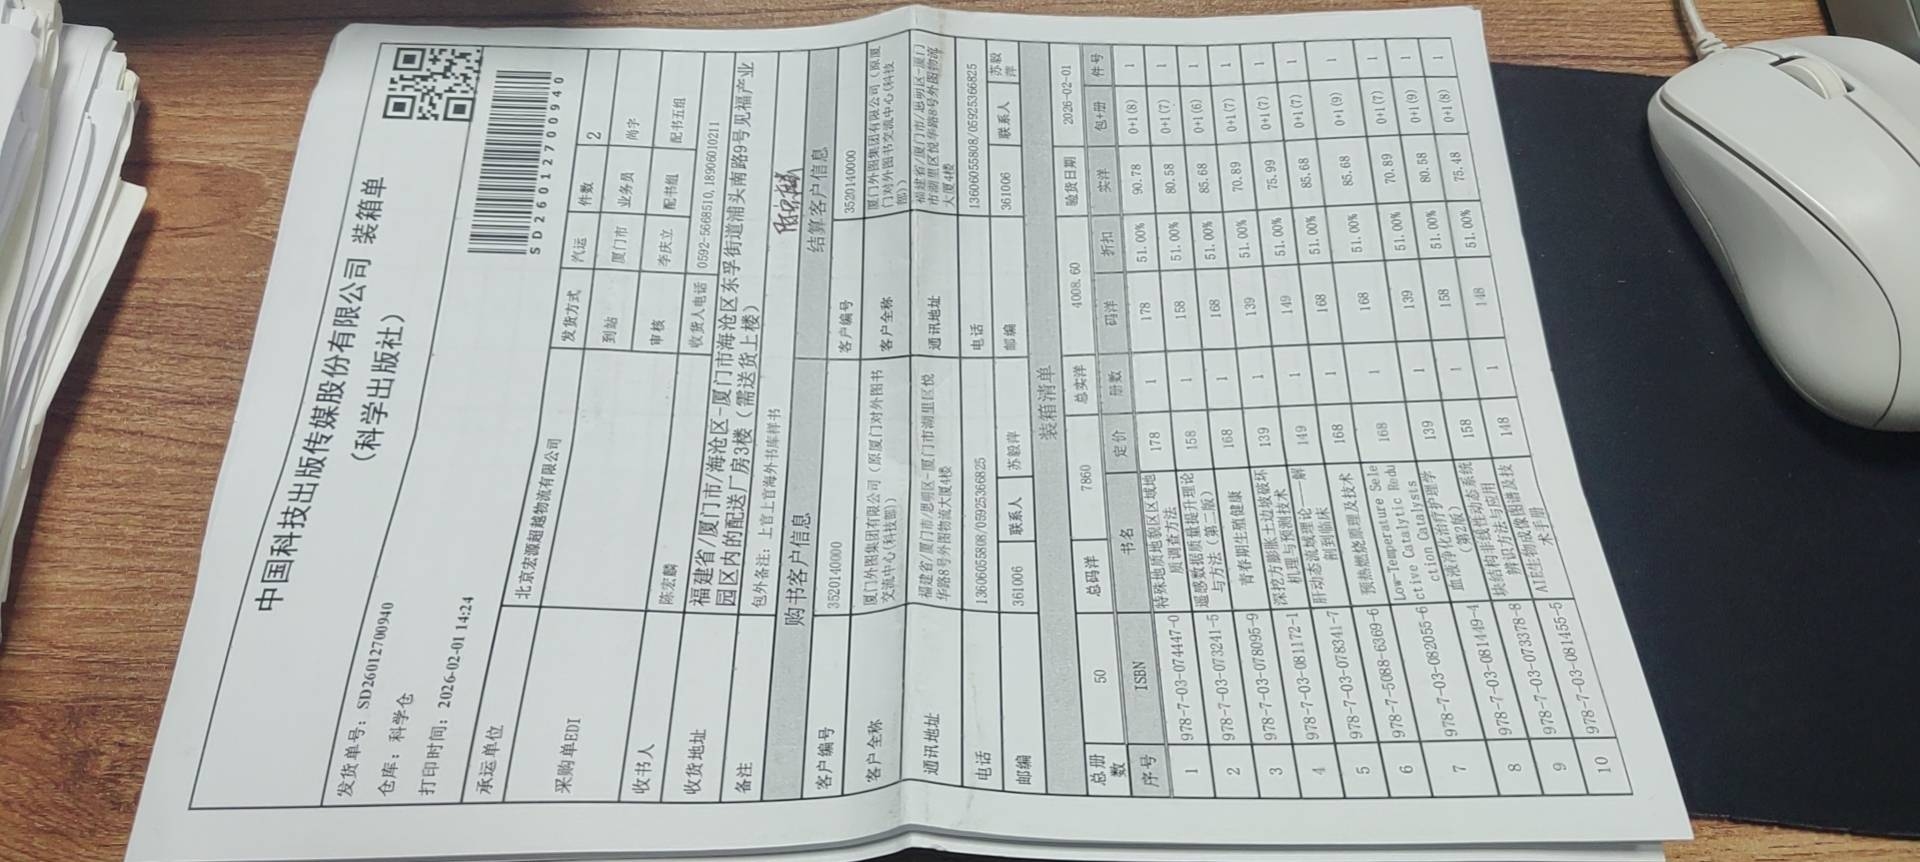 中国科技出版传媒股份有限公司 装箱单
（科学出版社）
发货单号：SD26012700940
仓库：科学仓
打印时间：2026-02-01 14:24
SD26012700940
承运单位 北京宏源超越物流有限公司 发货方式 汽运 件数 2
采购单EDI 到站 厦门市 业务员 尚宇
收书人 陈宏麟 审核 李庆立 配书组 配书五组
收货人电话 0592-5668510,18906010211
收货地址 福建省/厦门市/海沧区-厦门市海沧区东孚街道浦头南路9号见福产业
园区内的配送厂房3楼（需送货上楼）
备注 包外备注：上官上官海外书库样书
购书客户信息 结算客户信息
客户编号 3520140000 客户编号 3520140000
客户全称 厦门外图集团有限公司（原厦门对外图书
交流中心(科技部) 客户全称 厦门外图集团有限公司（原厦
门对外图书交流中心(科技
部))
通讯地址 福建省/厦门市/思明区-厦门市湖里区悦
华路8号外图物流大厦4楼 通讯地址 福建省/厦门市/思明区-厦门
市湖里区悦华路8号外图物流
大厦4楼
电话 13606055808/05925366825 电话 13606055808/05925366825
邮编 361006 联系人 苏毅萍 邮编 361006 联系人 苏毅
萍
装箱清单
总册
数 50 总码洋 7860 总实洋 4008.60 验货日期 2026-02-01
序号 ISBN 书名 定价 册数 码洋 折扣 实洋 包+册 件号
1 978-7-03-074447-0 特殊地质地貌区区域地
质调查方法 178 1 178 51.00% 90.78 0+1(8) 1
2 978-7-03-073241-5 遥感数据质量提升理论
与方法（第二版） 158 1 158 51.00% 80.58 0+1(7) 1
3 978-7-03-078095-9 青春期生殖健康 168 1 168 51.00% 85.68 0+1(6) 1
4 978-7-03-081172-1 深挖方膨胀土边坡破坏
机理与预测技术 139 1 139 51.00% 70.89 0+1(7) 1
5 978-7-03-078341-7 肝动态流域理论——解
剖到临床 149 1 149 51.00% 75.99 0+1(7) 1
6 978-7-5088-6369-6 预热燃烧原理及技术 168 1 168 51.00% 85.68 0+1(7) 1
7 978-7-03-082055-6 Low-Temperature Sele
ctive Catalytic Redu
ction Catalysts 168 1 168 51.00% 85.68 0+1(9) 1
8 978-7-03-081449-4 血液净化治疗护理学
（第2版） 139 1 139 51.00% 70.89 0+1(7) 1
9 978-7-03-073378-8 块结构非线性动态系统
辨识方法与应用 158 1 158 51.00% 80.58 0+1(9) 1
10 978-7-03-081455-5 AIE生物成像图谱及技
术手册 148 1 148 51.00% 75.48 0+1(8) 1